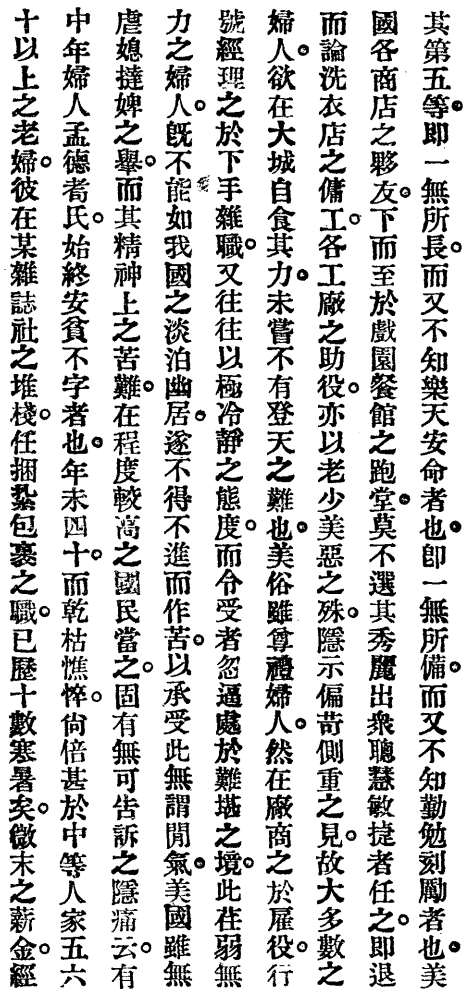 其第五等。即一無所長。而又不知樂天安命者也。即一無所備。而又不知勤勉刻勵者也。美
國各商店之夥友。下而至於戲園餐館之跑堂。莫不選其秀麗出衆聰慧敏捷者任之。即退
而論洗衣店之傭工。各工廠之助役。亦以老少美惡之殊。隱示偏苛側重之見。故大多數之
婦人。欲在大城自食其力。未嘗不有登天之難也。美俗雖尊禮婦人。然在廠商之於雇役。行
號經理之於下手雜職。又往往以極冷靜之態度。而令受者忽逼處於難堪之境。此在弱無
力之婦人。既不能如我國之淡泊幽居。遂不得不進而作苦。以承受此無謂閒氣。美國雖無
虐媳撻婢之舉。而其精神上之苦難。在程度較高之國民當之。固有無可告訴之隱痛云。有
中年婦人孟德耆氏。始終安貧不字者也。年未四十。而乾枯憔悴。尙倍甚於中等人家五六
十以上之老婦。彼在某雜誌社之堆棧。任捆紮包裹之職。已歷十數寒暑矣。微末之薪金。經